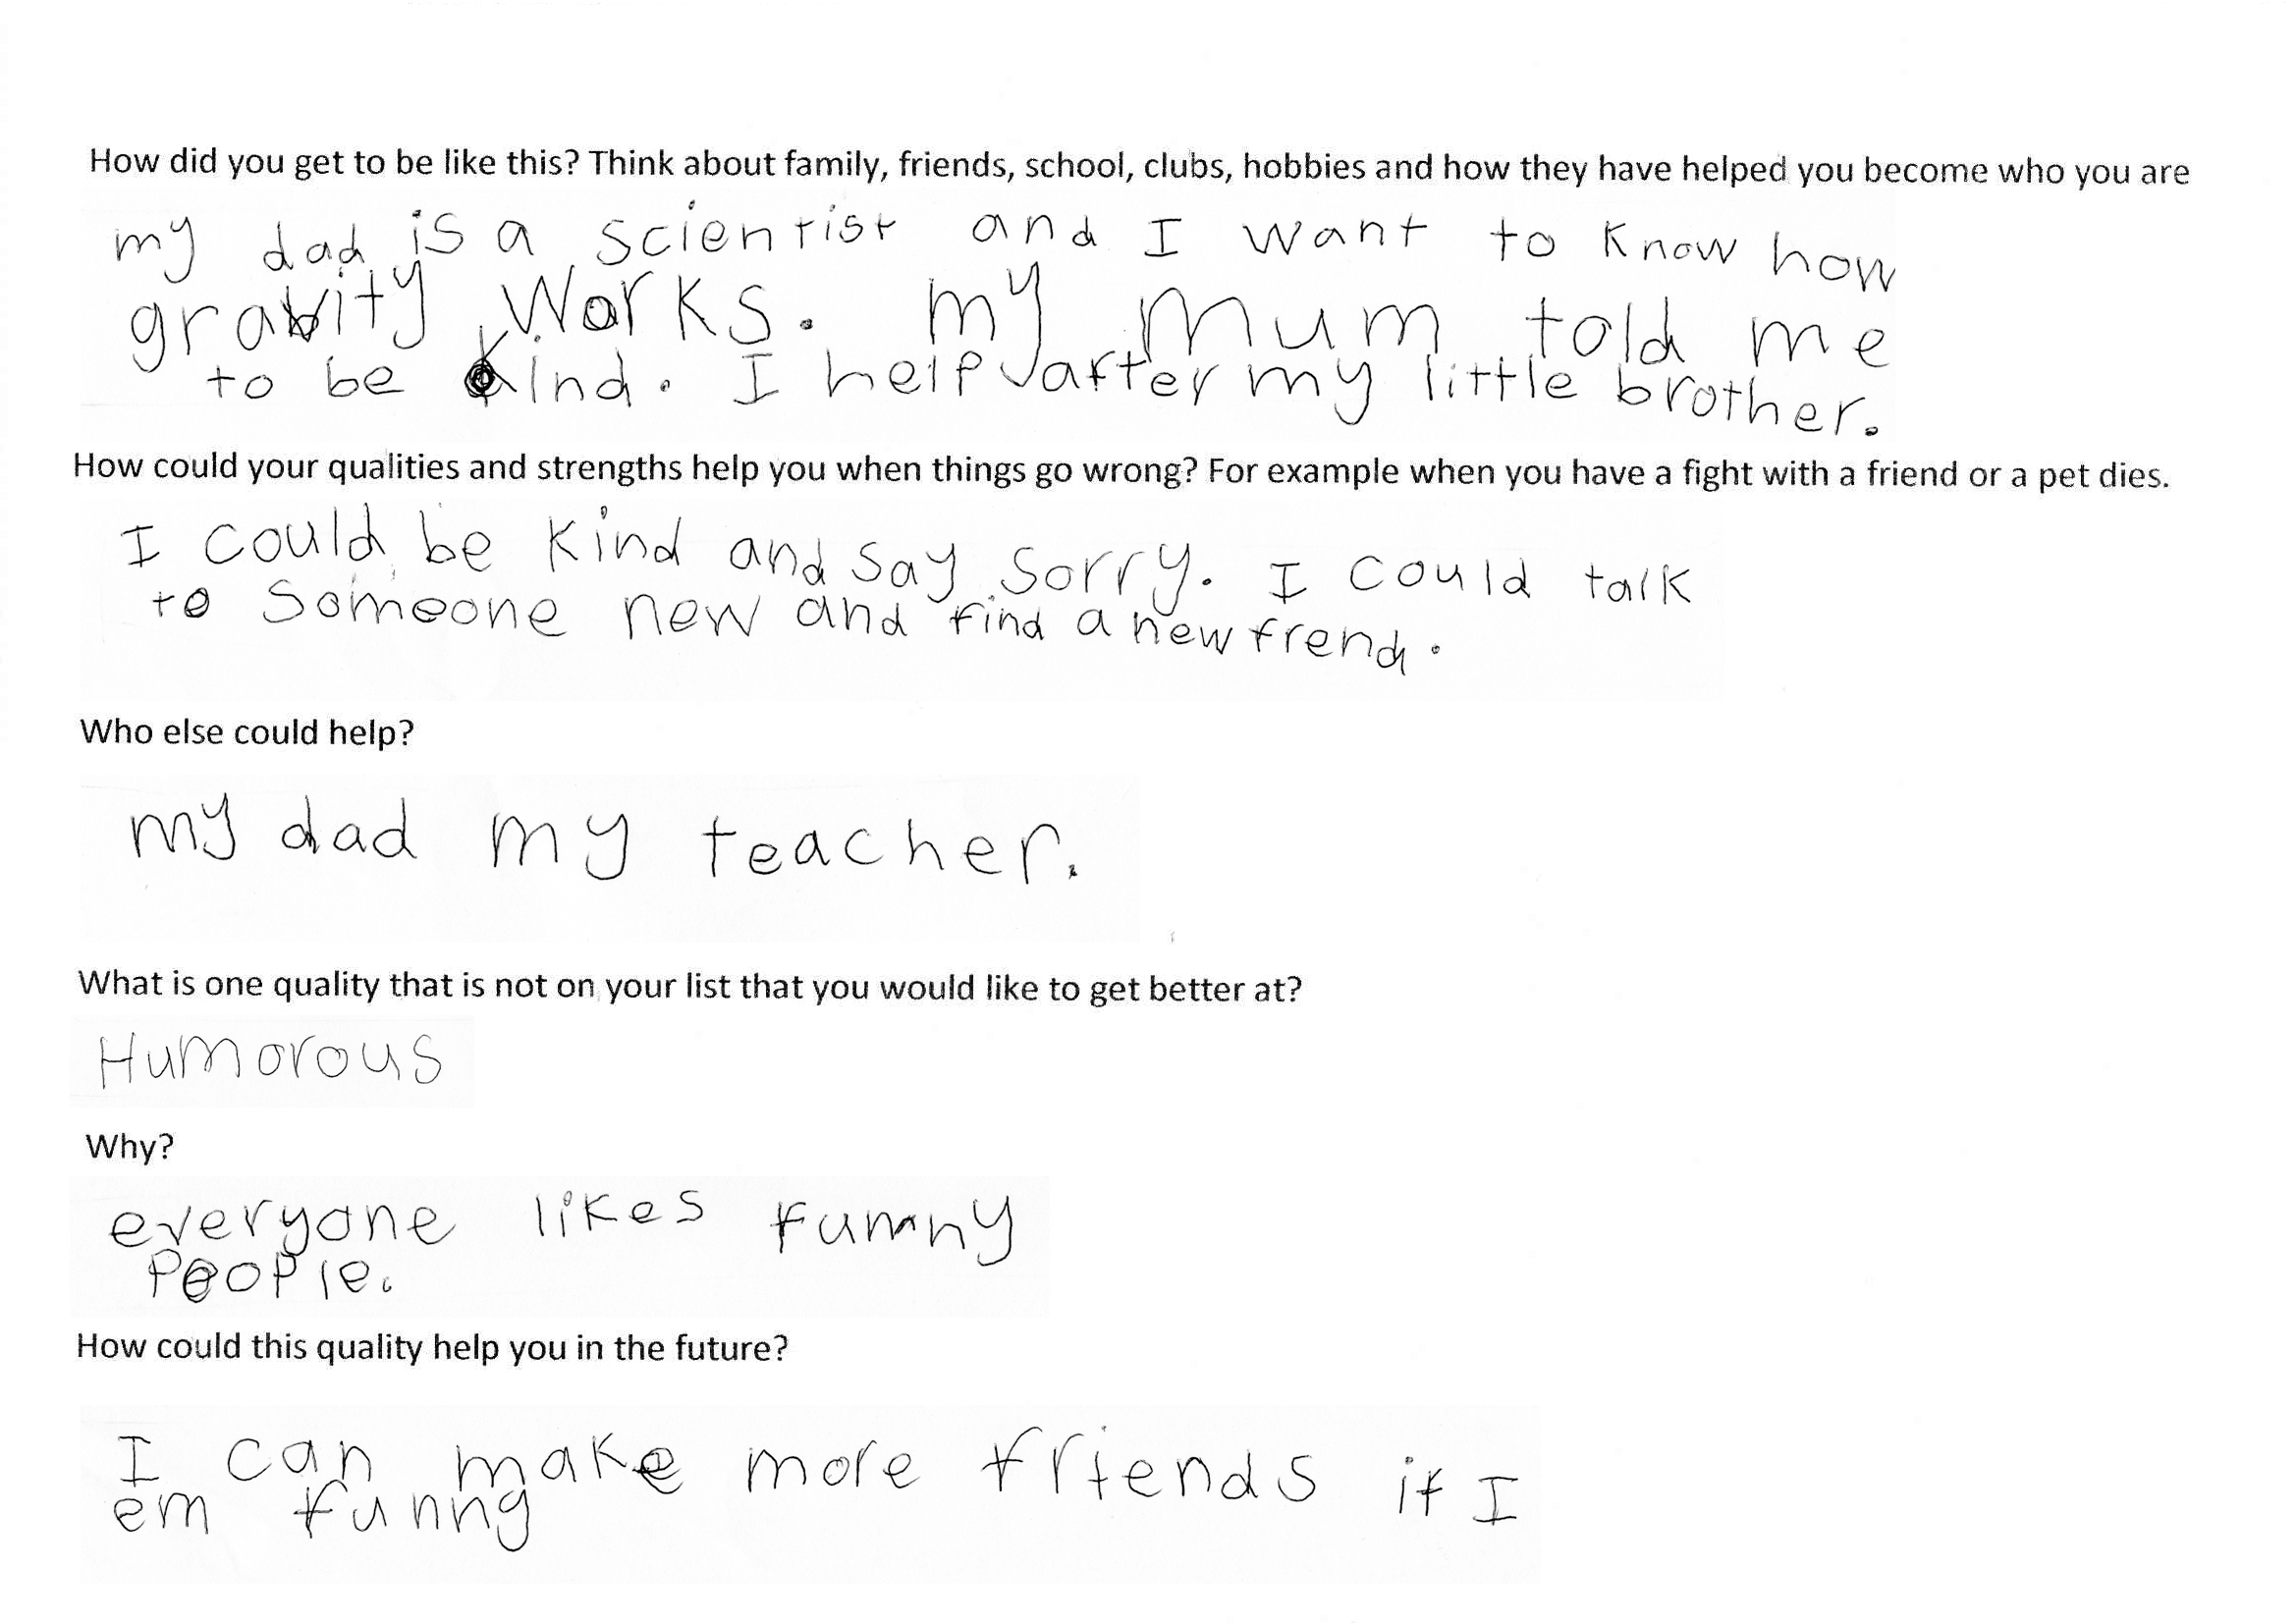 How did you get to be like this? Think about family, friends, school, clubs, hobbies and how they have helped you become who you are
my dad is a scientist and I want to know how
gravity works. my mum told me
to be kind. I help after my little brother.
How could your qualities and strengths help you when things go wrong? For example when you have a fight with a friend or a pet dies.
I could be kind and say sorry. I could talk
to someone new and find a new frend.
Who else could help?
my dad my teacher.
What is one quality that is not on your list that you would like to get better at?
Humorous
Why?
everyone likes funny
people.
How could this quality help you in the future?
I can make more friends if I
em funny